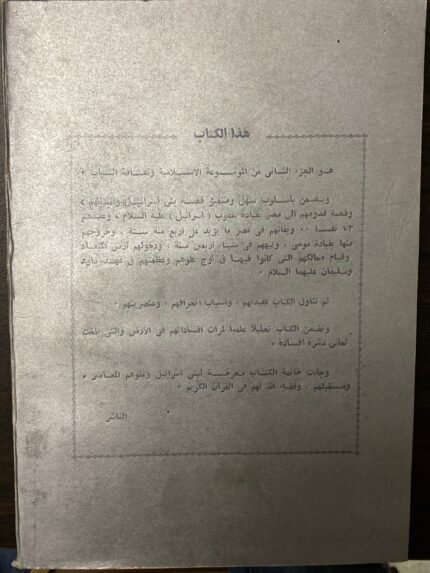 هذا الكتاب
هو الجزء الثانى من الموسوعة الاسلامية وثقافة الشباب •
ويتضمن بأسلوب سهل ومتعمق قصة بنى اسرائيل وأنبيائهم ،
وقصة قدومهم الى مصر بقيادة يعقوب ( اسرائيل ) عليه السلام ، وعددهم
٧٣ نفسا •• وبقائهم فى مصر ما يزيد على أربع مئة سنة ، وخروجهم
منها بقيادة موسى ، وتيههم فى سيناء أربعين سنة ، ودخولهم أرض الميعاد
وقيام ممالكهم التى كانوا فيها فى أوج علوهم وعظمتهم فى عهد داود
وسليمان عليهما السلام •
ثم تناول الكتاب عقيدتهم ، وأسباب انحرافهم ، وعنصريتهم •
وتضمن الكتاب تحليلا علميا لمرات افساداتهم فى الأرض والتى بلغت
ثمانى عشرة افسادة •
وجاءت خاتمة الكتاب معرضة لبنى اسرائيل وعلوهم المعاصر ،
ومستقبلهم ، وقضاء الله لهم فى القرآن الكريم •
الناشر